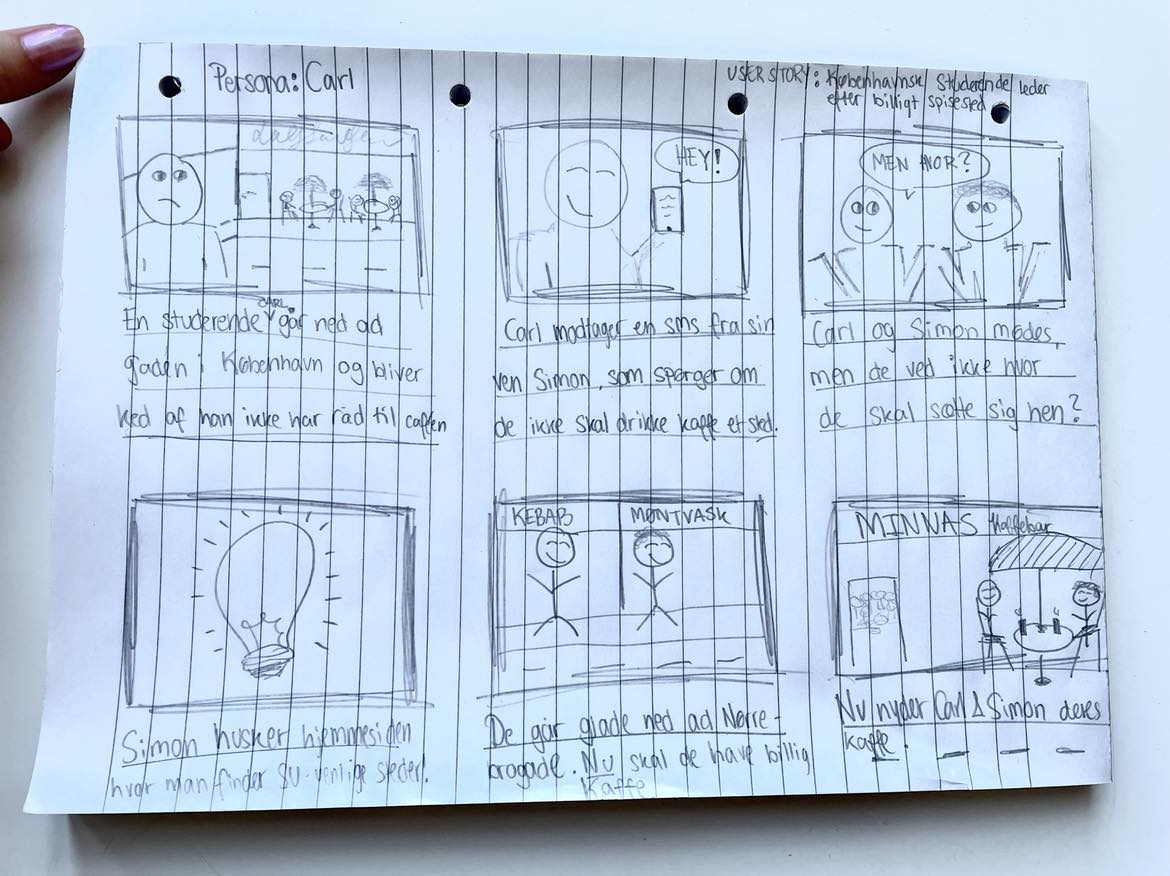 Persona: Carl
USER STORY: Københavnsk Studerende leder
efter billigt spisested
HEY!
MEN HVOR?
En studerende CARL går ned ad
gaden i København og bliver
ked af han ikke har råd til caffen
Carl modtager en sms fra sin
ven Simon, som spørger om
de ikke skal drikke kaffe et sted.
Carl og Simon mødes,
men de ved ikke hvor
de skal sætte sig hen?
KEBAB
MØNTVASK
MINNAS Kaffebar
Simon husker hjemmesiden
hvor man finder SU-venlige steder!
De går glade ned ad Nørre-
brogade. Nu skal de have billig
Kaffe
Nu nyder Carl & Simon deres
kaffe.